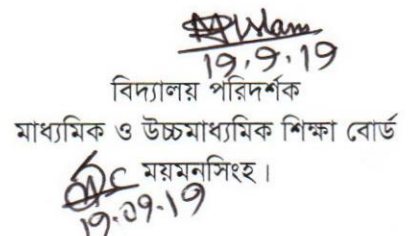 19.9.19
বিদ্যালয় পরিদর্শক
মাধ্যমিক ও উচ্চমাধ্যমিক শিক্ষা বোর্ড
ময়মনসিংহ।
19.09.19